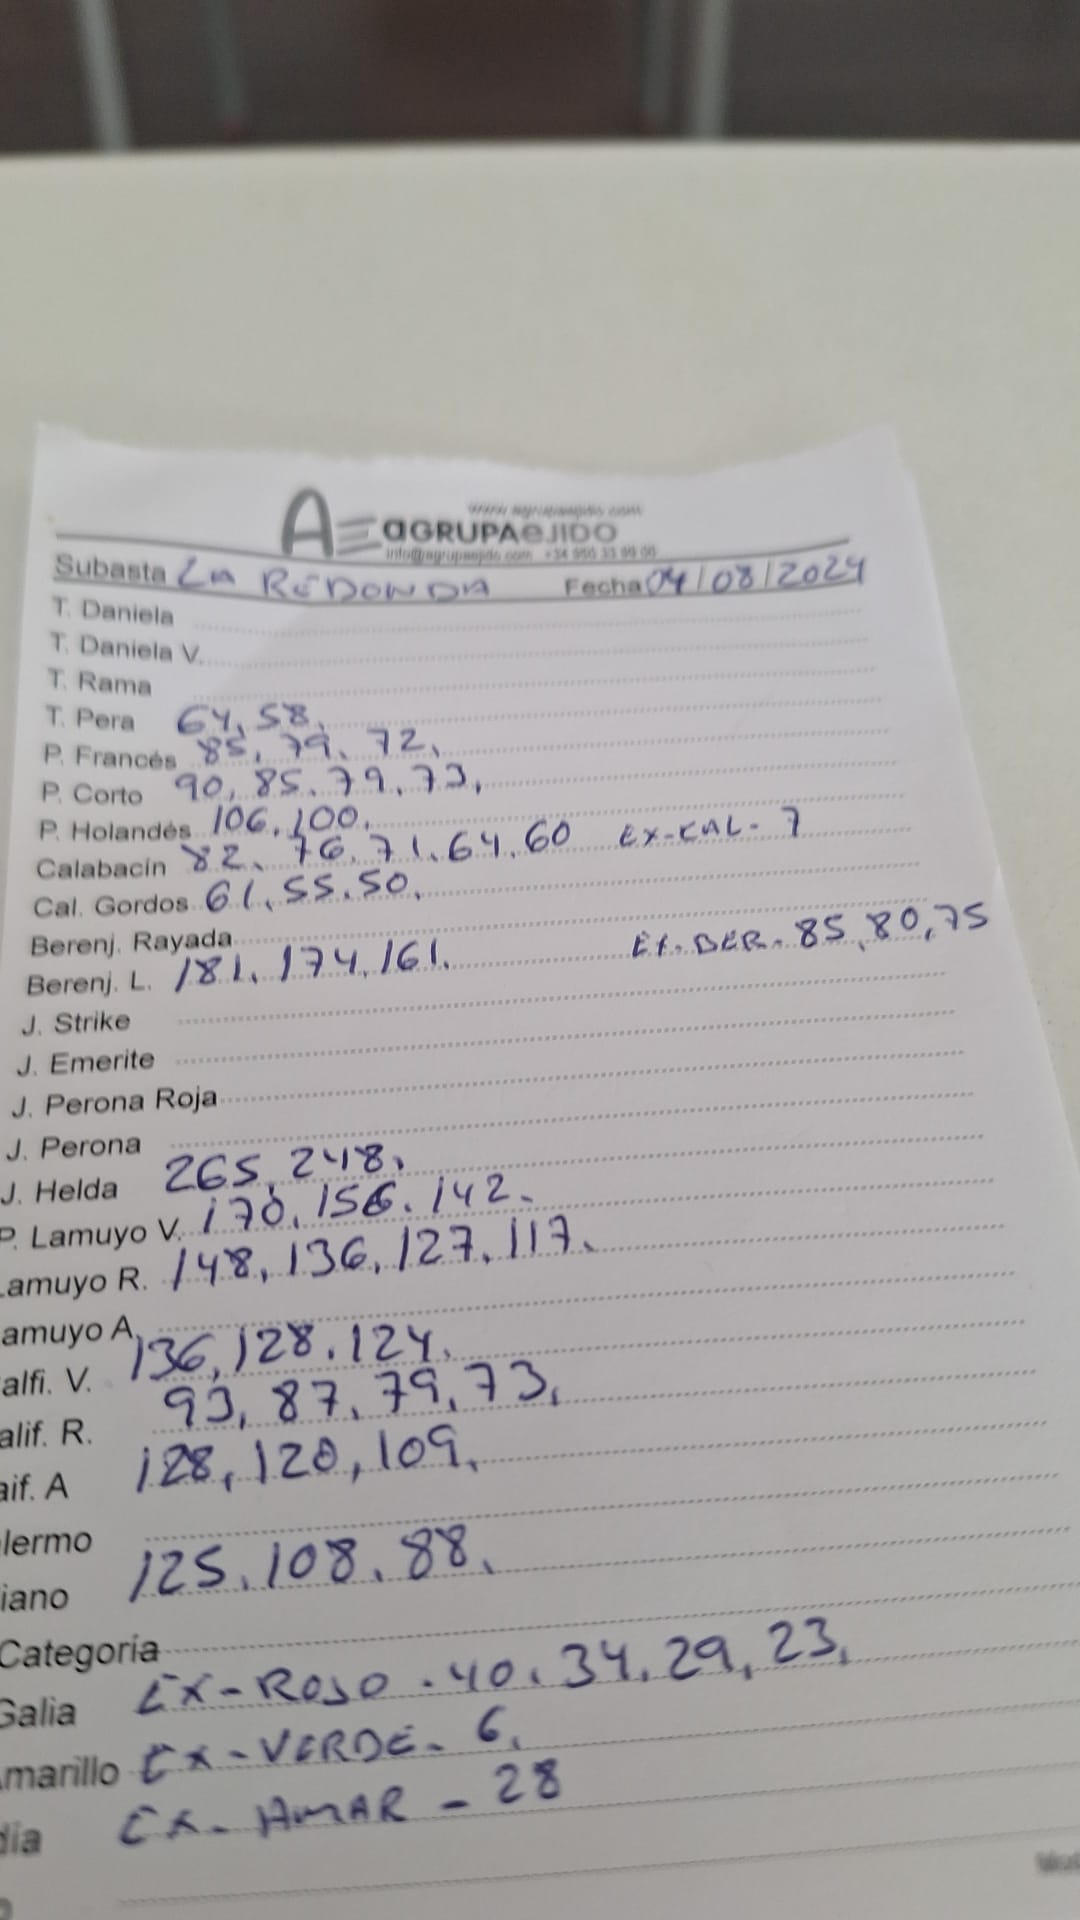 www.agrupaejido.com
AE aGRUPAeJIDO
info@agrupaejido.com +34 950 33 99 00
Subasta LA REDONDA Fecha 04/08/2024
T. Daniela
T. Daniela V.
T. Rama
T. Pera 64, 58,
P. Francés 85, 79, 72,
P. Corto 90, 85, 79, 73,
P. Holandés 106, 100,
Calabacín 82, 76, 71, 64, 60 EX-CAL- 7
Cal. Gordos 61, 55, 50,
Berenj. Rayada
Berenj. L. 181, 174, 161. EX-BER- 85, 80, 75
J. Strike
J. Emerite
J. Perona Roja
J. Perona
J. Helda 265, 248,
P. Lamuyo V. 170, 156, 142.
Lamuyo R. 148, 136, 127, 117.
amuyo A.
alfi. V. 136, 128, 124.
alif. R. 93, 87, 79, 73,
aif. A 128, 120, 109,
lermo
iano 125, 108, 88,
Categoría
Galia EX-ROJO - 40, 34, 29, 23,
marillo EX-VERDE- 6,
dia EX-AMAR - 28